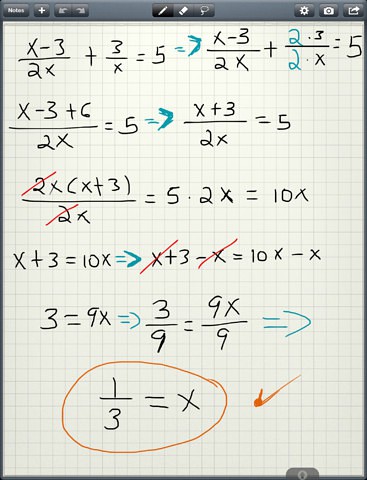 Notes
(x-3)/(2x) + 3/x = 5 ⇒ (x-3)/(2x) + (2·3)/(2·x) = 5
(x-3+6)/(2x) = 5 ⇒ (x+3)/(2x) = 5
(2x(x+3))/(2x) = 5·2x = 10x
x+3 = 10x ⇒ x+3-x = 10x-x
3 = 9x ⇒ 3/9 = 9x/9 ⇒
1/3 = x ✓